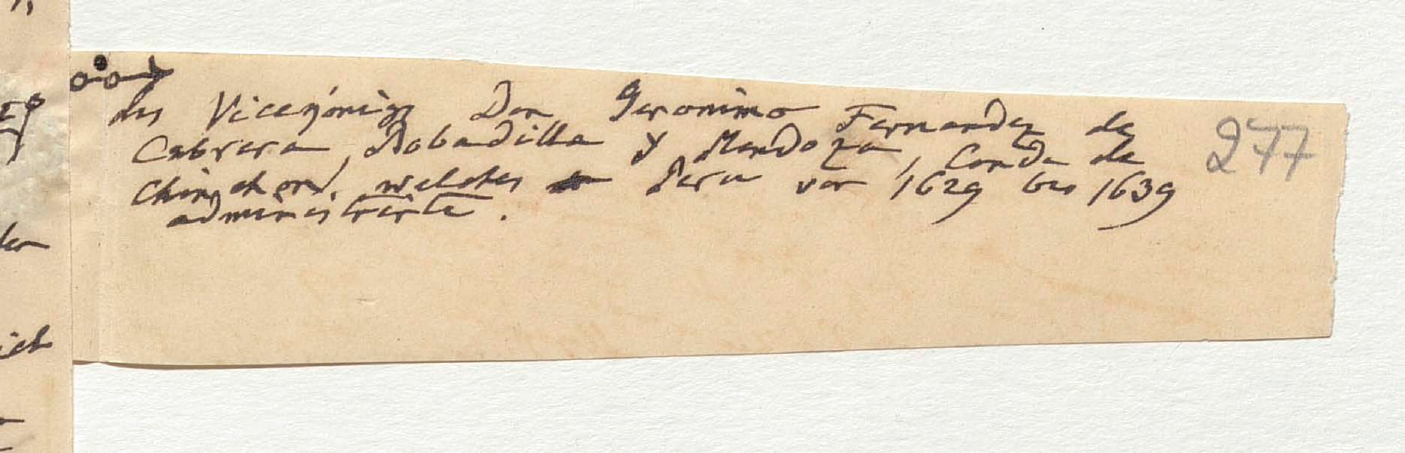 des Vicekönigs Don Geronimo Fernandez de
Cabrera, Bobadilla y Mendoza, Conde de
Chinchon, welcher Peru von 1629 bis 1639
administrirte.
277